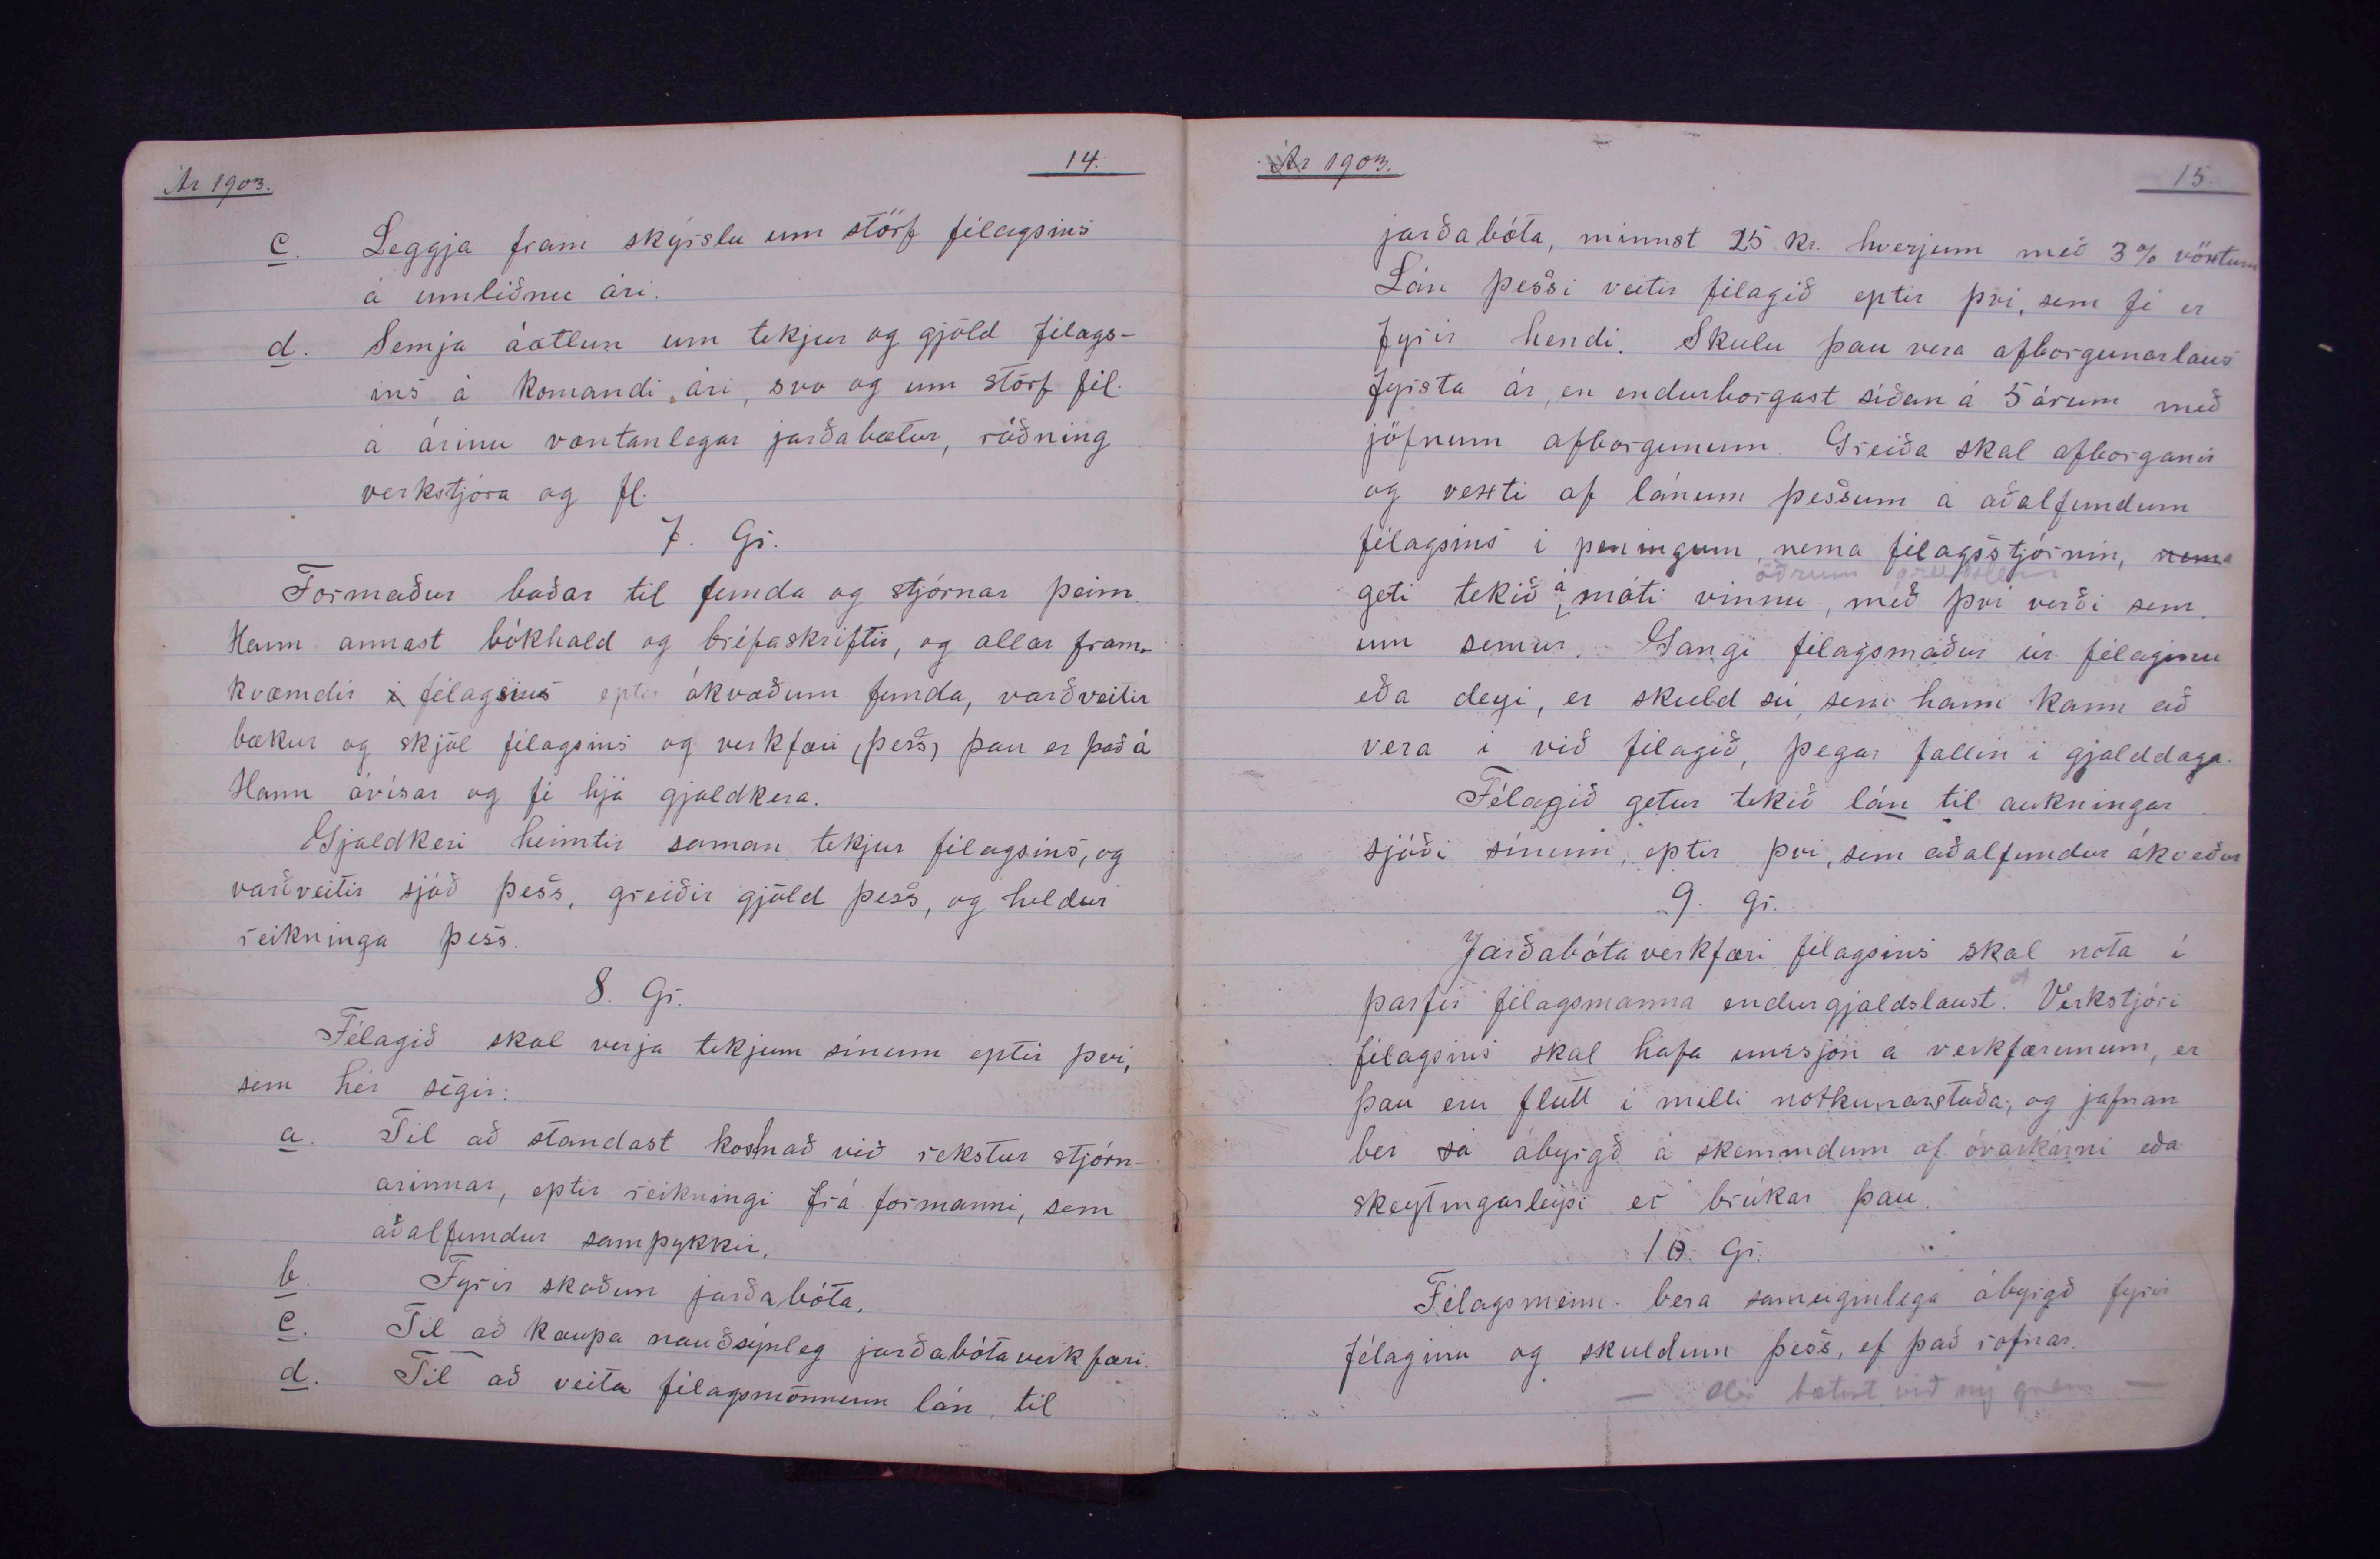 Ár 1903.
14.
c. Leggja fram skýrslu um störf félagsins
á umliðnu ári.
d. Semja áætlun um tekjur og gjöld félags-
ins á komandi ári, svo og um störf fél.
á árinu væntanlegar jarðabætur, ráðning
verkstjóra og fl.
7. Gr.
Formaður boðar til funda og stjórnar þeim.
Hann annast bókhald og bréfaskriftir, og allar fram-
kvæmdir í félagsins eptir ákvæðum funda, varðveitir
bækur og skjöl félagsins og verkfæri (þess) þau er það á
Hann ávísar og fé hjá gjaldkera.
Gjaldkeri heimtir saman tekjur félagsins, og
varðveitir sjóð þess, greiðir gjöld þess, og heldur
reikninga þess.
8. Gr.
Félagið skal verja tekjum sínum eptir því,
sem hér segir:
a. Til að standast kostnað við rekstur stjórn-
arinnar, eptir reikningi frá formanni, sem
aðalfundur samþykkir.
b. Fyrir skoðun jarðabóta.
c. Til að kaupa nauðsýnleg jarðabótaverkfæri.
d. Til að veita félagsmönnum lán til
Ár 1903.
15.
jarðabóta, minnst 25 kr. hverjum með 3% vöxtum
Lán þessi veitir félagið eptir því, sem fé er
fyrir hendi. Skulu þau vera afborgunarlaus
fyrsta ár, en endurborgast síðan á 5 árum með
jöfnum afborgunum. Greiða skal afborganir
og vexti af lánum þessum á aðalfundum
félagsins í peningum, nema félagsstjórnin, nema
öðrum
geti tekið á móti vinnu, með því verði sem
um semur. Gangi félagsmaður úr félaginu
eða deyi, er skuld sú, sem hann kann að
vera í við félagið, þegar fallin í gjalddaga.
Félagið getur tekið lán til aukningar
sjóði sínum, eptir því, sem aðalfundur ákveður
9. Gr.
Jarðabótaverkfæri félagsins skal nota í
þarfir félagsmanna endurgjaldslaust. Verkstjóri
félagsins skal hafa umsjón á verkfærunum, er
þau eru flutt í milli notkunarstaða, og jafnan
ber sá ábyrgð á skemmdum af óvarkárni eða
skeytingarleysi er brúkar þau.
10. Gr.
Félagsmenn bera sameiginlega ábyrgð fyrir
félaginu og skuldum þess, ef það rofnar.
— Hér bætist við ný grein —